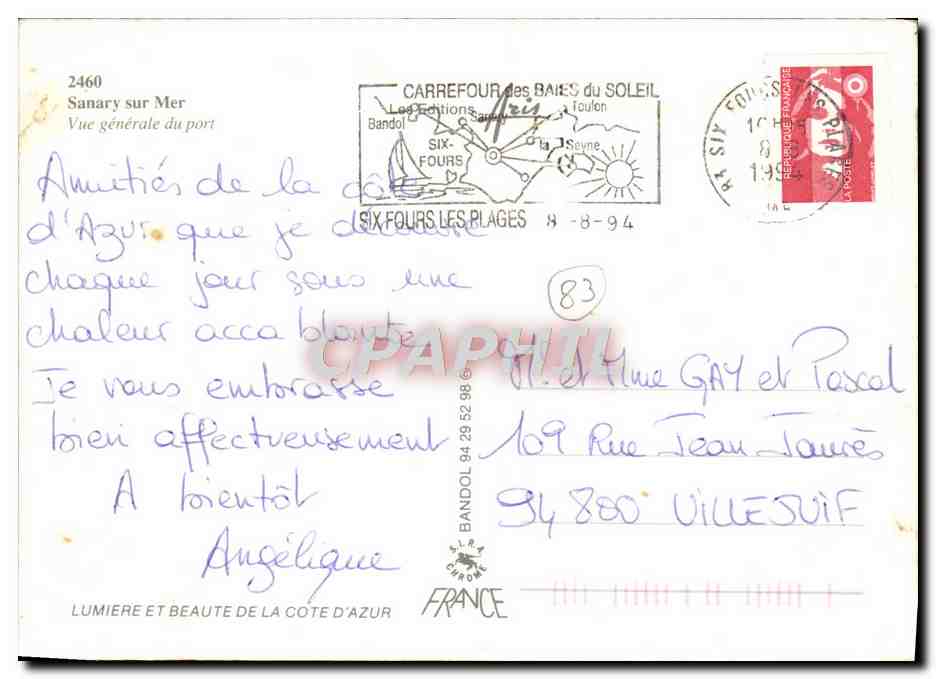 2460
Sanary sur Mer
Vue générale du port
CARREFOUR des BAIES du SOLEIL
Les Editions Aris
Bandol
Sanary
Toulon
SIX-FOURS
la Seyne
SIX FOURS LES PLAGES 8 -8-94
83 SIX FOURS LES PLAGES
8
1994
REPUBLIQUE FRANÇAISE
LA POSTE
Amitiés de la côte
d'Azur que je découvre
chaque jour sous une
chaleur accablante.
Je vous embrasse
bien affectueusement
A bientôt
Angélique
83
CPAPHIL
M. et Mme GAY et Pascal
109 Rue Jean Jaurès
94800 VILLEJUIF
BANDOL 94 29 52 98 ©
S.L.R.A
CHROME
FRANCE
LUMIERE ET BEAUTE DE LA COTE D'AZUR